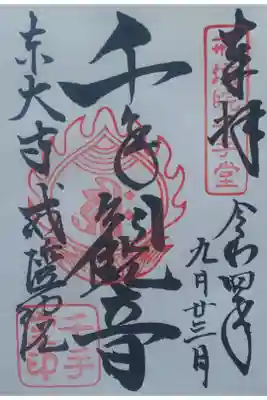 奉拝
戒壇院千手堂
令和四年
九月廿三日
千手観音
東大寺戒壇院
千手